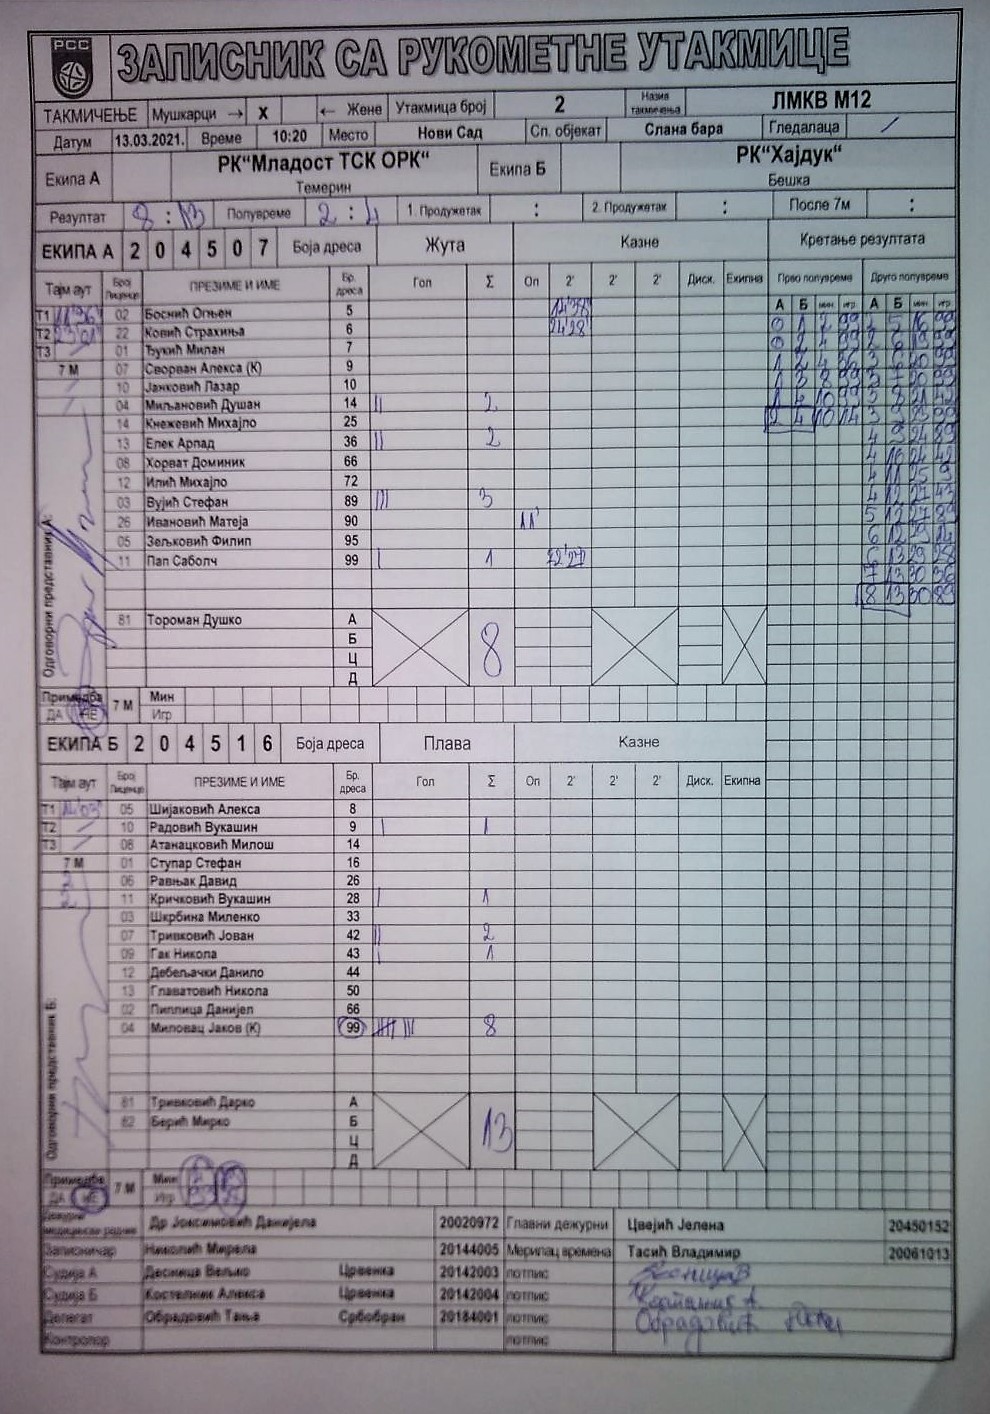 РСС
ЗАПИСНИК СА РУКОМЕТНЕ УТАКМИЦЕ
ТАКМИЧЕЊЕ Мушкарци → X ← Жене Утакмица број 2 Назив такмичења ЛМКВ М12
Датум 13.03.2021. Време 10:20 Место Нови Сад Сп. објекат Слана бара Гледалаца /
Екипа А РК"Младост ТСК ОРК" Темерин Екипа Б РК"Хајдук" Бешка
Резултат 8 : 13 Полувреме 2 : 4 1. Продужетак : 2. Продужетак : После 7м :
ЕКИПА А 2 0 4 5 0 7 Боја дреса Жута Казне Кретање резултата
Тајм аут Број Лиценце ПРЕЗИМЕ И ИМЕ Бр. дреса Гол Σ Оп 2' 2' 2' Диск. Екипна Прво полувреме Друго полувреме
А Б мин игр А Б мин игр
Т1 02 Боснић Огњен 5
Т2 22 Ковић Страхиња 6 24'28'
Т3 01 Ђукић Милан 7
7 М 07 Сворван Алекса (К) 9
10 Јанковић Лазар 10
04 Миљановић Душан 14 || 2
14 Кнежевић Михајло 25
13 Елек Арпад 36 || 2
08 Хорват Доминик 66
12 Илић Михајло 72
03 Вујић Стефан 89 ||| 3
26 Ивановић Матеја 90 11'
05 Зељковић Филип 95
11 Пап Саболч 99 | 1
81 Тороман Душко А
Б
Ц
Д
8
Одговорни представник А:
Примедба ДА НЕ 7 М Мин Игр
ЕКИПА Б 2 0 4 5 1 6 Боја дреса Плава Казне
Тајм аут Број Лиценце ПРЕЗИМЕ И ИМЕ Бр. дреса Гол Σ Оп 2' 2' 2' Диск. Екипна
Т1 05 Шијаковић Алекса 8
Т2 10 Радовић Вукашин 9 | 1
Т3 08 Атанацковић Милош 14
7 М 01 Ступар Стефан 16
06 Равњак Давид 26
11 Кричковић Вукашин 28 | 1
03 Шкрбина Миленко 33
07 Тривковић Јован 42 || 2
09 Гак Никола 43 | 1
12 Дебељачки Данило 44
13 Главатовић Никола 50
02 Пиплица Данијел 66
04 Миловац Јаков (К) 99 8
81 Тривковић Дарко А
82 Берић Мирко Б
Ц
Д
13
Одговорни представник Б:
Примедба ДА НЕ 7 М Мин Игр
Др Јоксимовић Данијела 20020972 Главни дежурни Цвејић Јелена 20450152
Записничар Николић Мирела 20144005 Мерилац времена Тасић Владимир 20061013
Судија А Десница Вељко Црвенка 20142003 потпис
Судија Б Костелник Алекса Црвенка 20142004 потпис
Делегат Обрадовић Тања Србобран 20184001 потпис Обрадовић
Контролор потпис